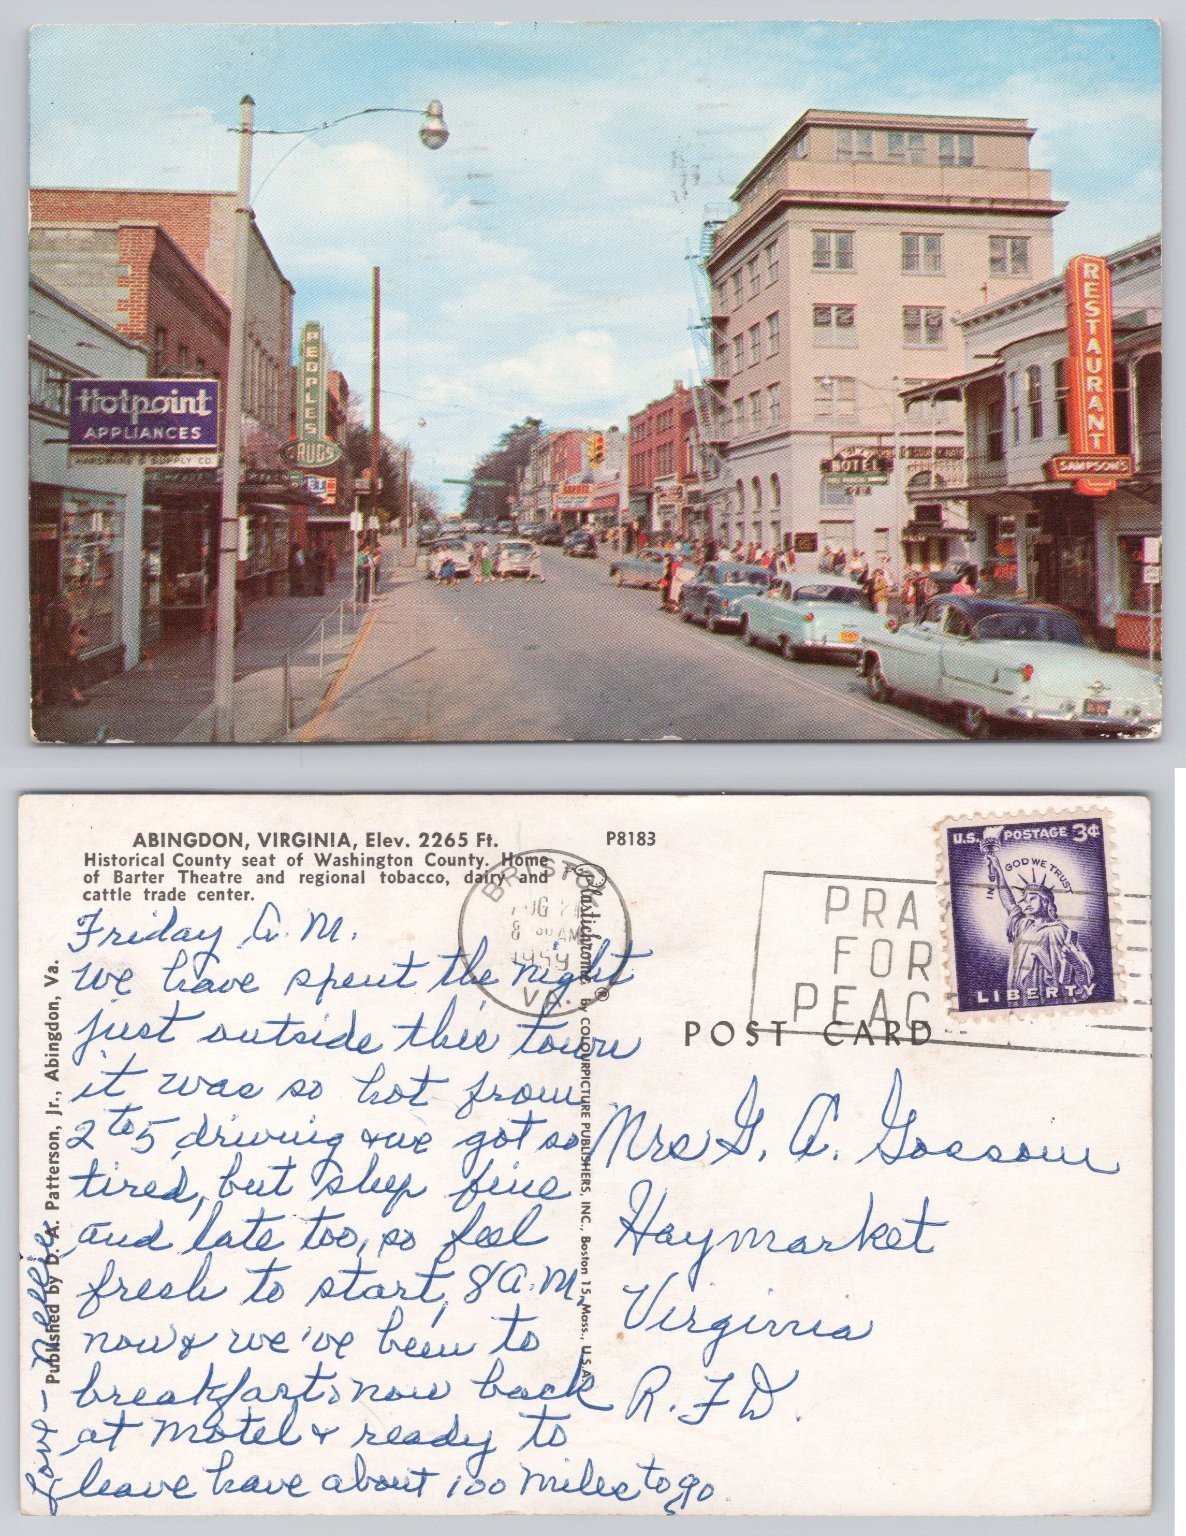 Hotpoint
APPLIANCES
HARDWARE & SUPPLY CO.
PEOPLES
DRUGS
HOTEL
RESTAURANT
SAMPSON'S
ABINGDON, VIRGINIA, Elev. 2265 Ft.
Historical County seat of Washington County. Home
of Barter Theatre and regional tobacco, dairy and
cattle trade center.
P8183
BRISTOL
AUG 21
8 30 AM
1959
VA.
PRA
FOR
PEAC
U.S. POSTAGE 3¢
IN GOD WE TRUST
LIBERTY
POST CARD
Friday A.M.
We have spent the night
just outside this town
it was so hot from
2 to 5, driving & we got so
tired, but sleep fine
and late too, so feel
fresh to start, 8 A.M,
now & we've been to
breakfast, now back
at Motel & ready to
leave have about 100 miles to go.
Love - Nellie
Mrs G. A. Gossom
Haymarket
Virginia
R.F.D.
Published by D. A. Patterson, Jr., Abingdon, Va.
Plastichrome ® by COLOURPICTURE PUBLISHERS, INC., Boston 15, Mass., U.S.A.